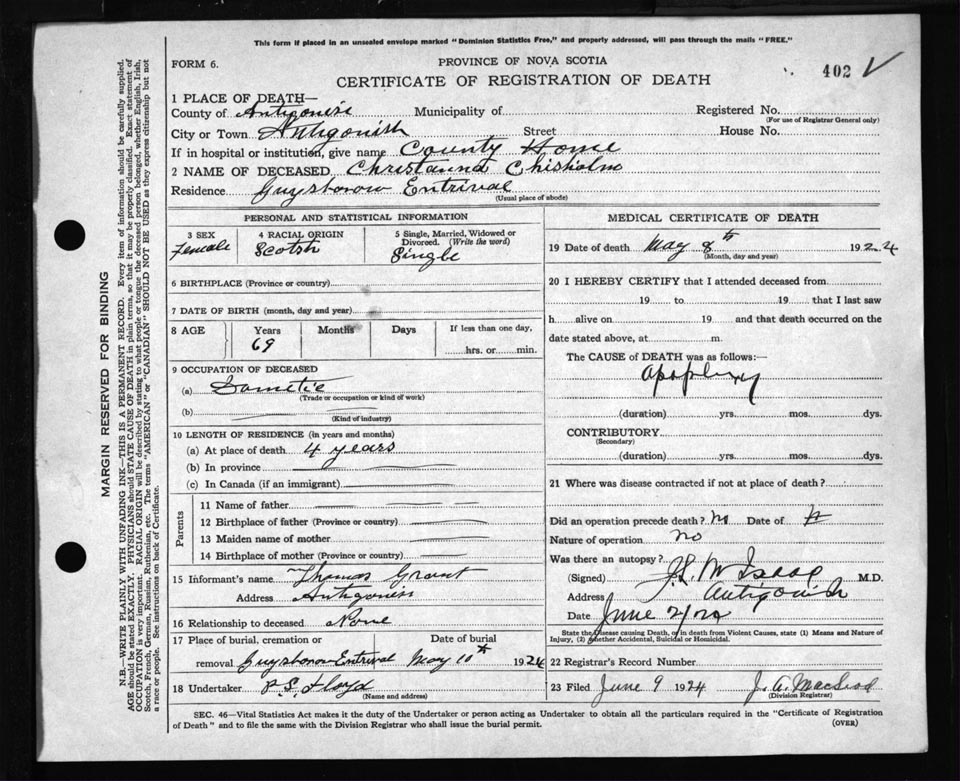 This form if placed in an unsealed envelope marked "Dominion Statistics Free," and properly addressed, will pass through the mails "FREE."
FORM 6.
PROVINCE OF NOVA SCOTIA
CERTIFICATE OF REGISTRATION OF DEATH
402
MARGIN RESERVED FOR BINDING
N.B.—WRITE PLAINLY WITH UNFADING INK—THIS IS A PERMANENT RECORD. Every item of information should be carefully supplied.
AGE should be stated EXACTLY. PHYSICIANS should STATE CAUSE OF DEATH in plain terms, so that it may be properly classified. Exact statement of
OCCUPATION is very important. RACIAL ORIGIN will be described by stating to what people or tongue the deceased person belonged, whether English, Irish,
Scotch, French, German, Russian, Ruthenian, etc. The terms "AMERICAN" or "CANADIAN" SHOULD NOT BE USED as they express citizenship but not
a race or people. See instructions on back of Certificate.
1 PLACE OF DEATH—
County of Antigonish Municipality of Registered No.
(For use of Registrar General only)
City or Town Antigonish Street House No.
If in hospital or institution, give name County Home
2 NAME OF DECEASED Christanna Chisholm
Residence Guysborow Entrival
(Usual place of abode)
PERSONAL AND STATISTICAL INFORMATION
3 SEX Female
4 RACIAL ORIGIN Scotsh
5 Single, Married, Widowed or Divorced. (Write the word) Single
6 BIRTHPLACE (Province or country)
7 DATE OF BIRTH (month, day and year)
8 AGE Years 69 Months Days If less than one day, hrs. or min.
9 OCCUPATION OF DECEASED
(a) Dometic
(Trade or occupation or kind of work)
(b)
(Kind of industry)
10 LENGTH OF RESIDENCE (in years and months)
(a) At place of death 4 years
(b) In province
(c) In Canada (if an immigrant)
Parents
11 Name of father
12 Birthplace of father (Province or country)
13 Maiden name of mother
14 Birthplace of mother (Province or country)
15 Informant's name Thomas Grant
Address Antigonish
16 Relationship to deceased None
17 Place of burial, cremation or removal Guysborow Entrival
Date of burial May 10th 1924
18 Undertaker P S Floyd
(Name and address)
MEDICAL CERTIFICATE OF DEATH
19 Date of death May 8th 1924
(Month, day and year)
20 I HEREBY CERTIFY that I attended deceased from
19 to 19 that I last saw
h alive on 19 and that death occurred on the
date stated above, at m.
The CAUSE of DEATH was as follows:—
apoplexy
(duration) yrs. mos. dys.
CONTRIBUTORY
(Secondary)
(duration) yrs. mos. dys.
21 Where was disease contracted if not at place of death?
Did an operation precede death? No Date of
Nature of operation no
Was there an autopsy?
(Signed) McIsaac M.D.
Address Antigonish
Date June
State the Disease causing Death, or in death from Violent Causes, state (1) Means and Nature of
Injury, (2) whether Accidental, Suicidal or Homicidal.
22 Registrar's Record Number
23 Filed June 9 1924 J. A. MacLeod
(Division Registrar)
SEC. 46—Vital Statistics Act makes it the duty of the Undertaker or person acting as Undertaker to obtain all the particulars required in the "Certificate of Registration
of Death" and to file the same with the Division Registrar who shall issue the burial permit.
(OVER)